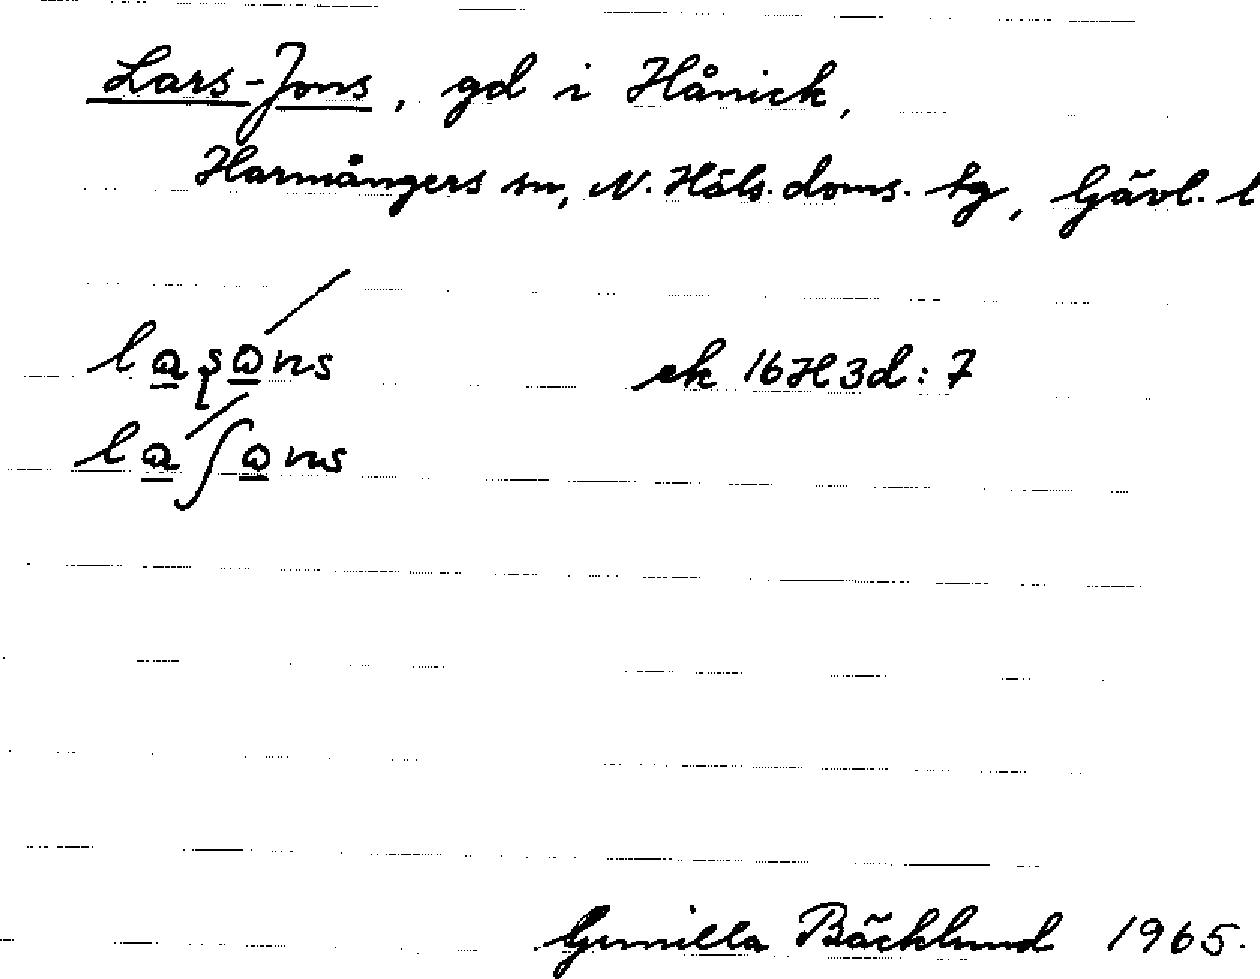 Lars-Jons, gd i Hånick,
Harmångers sn, N. Häls. doms. tg, Gävl. l
ek 16H3d:7
Gunilla Bäcklund 1965.